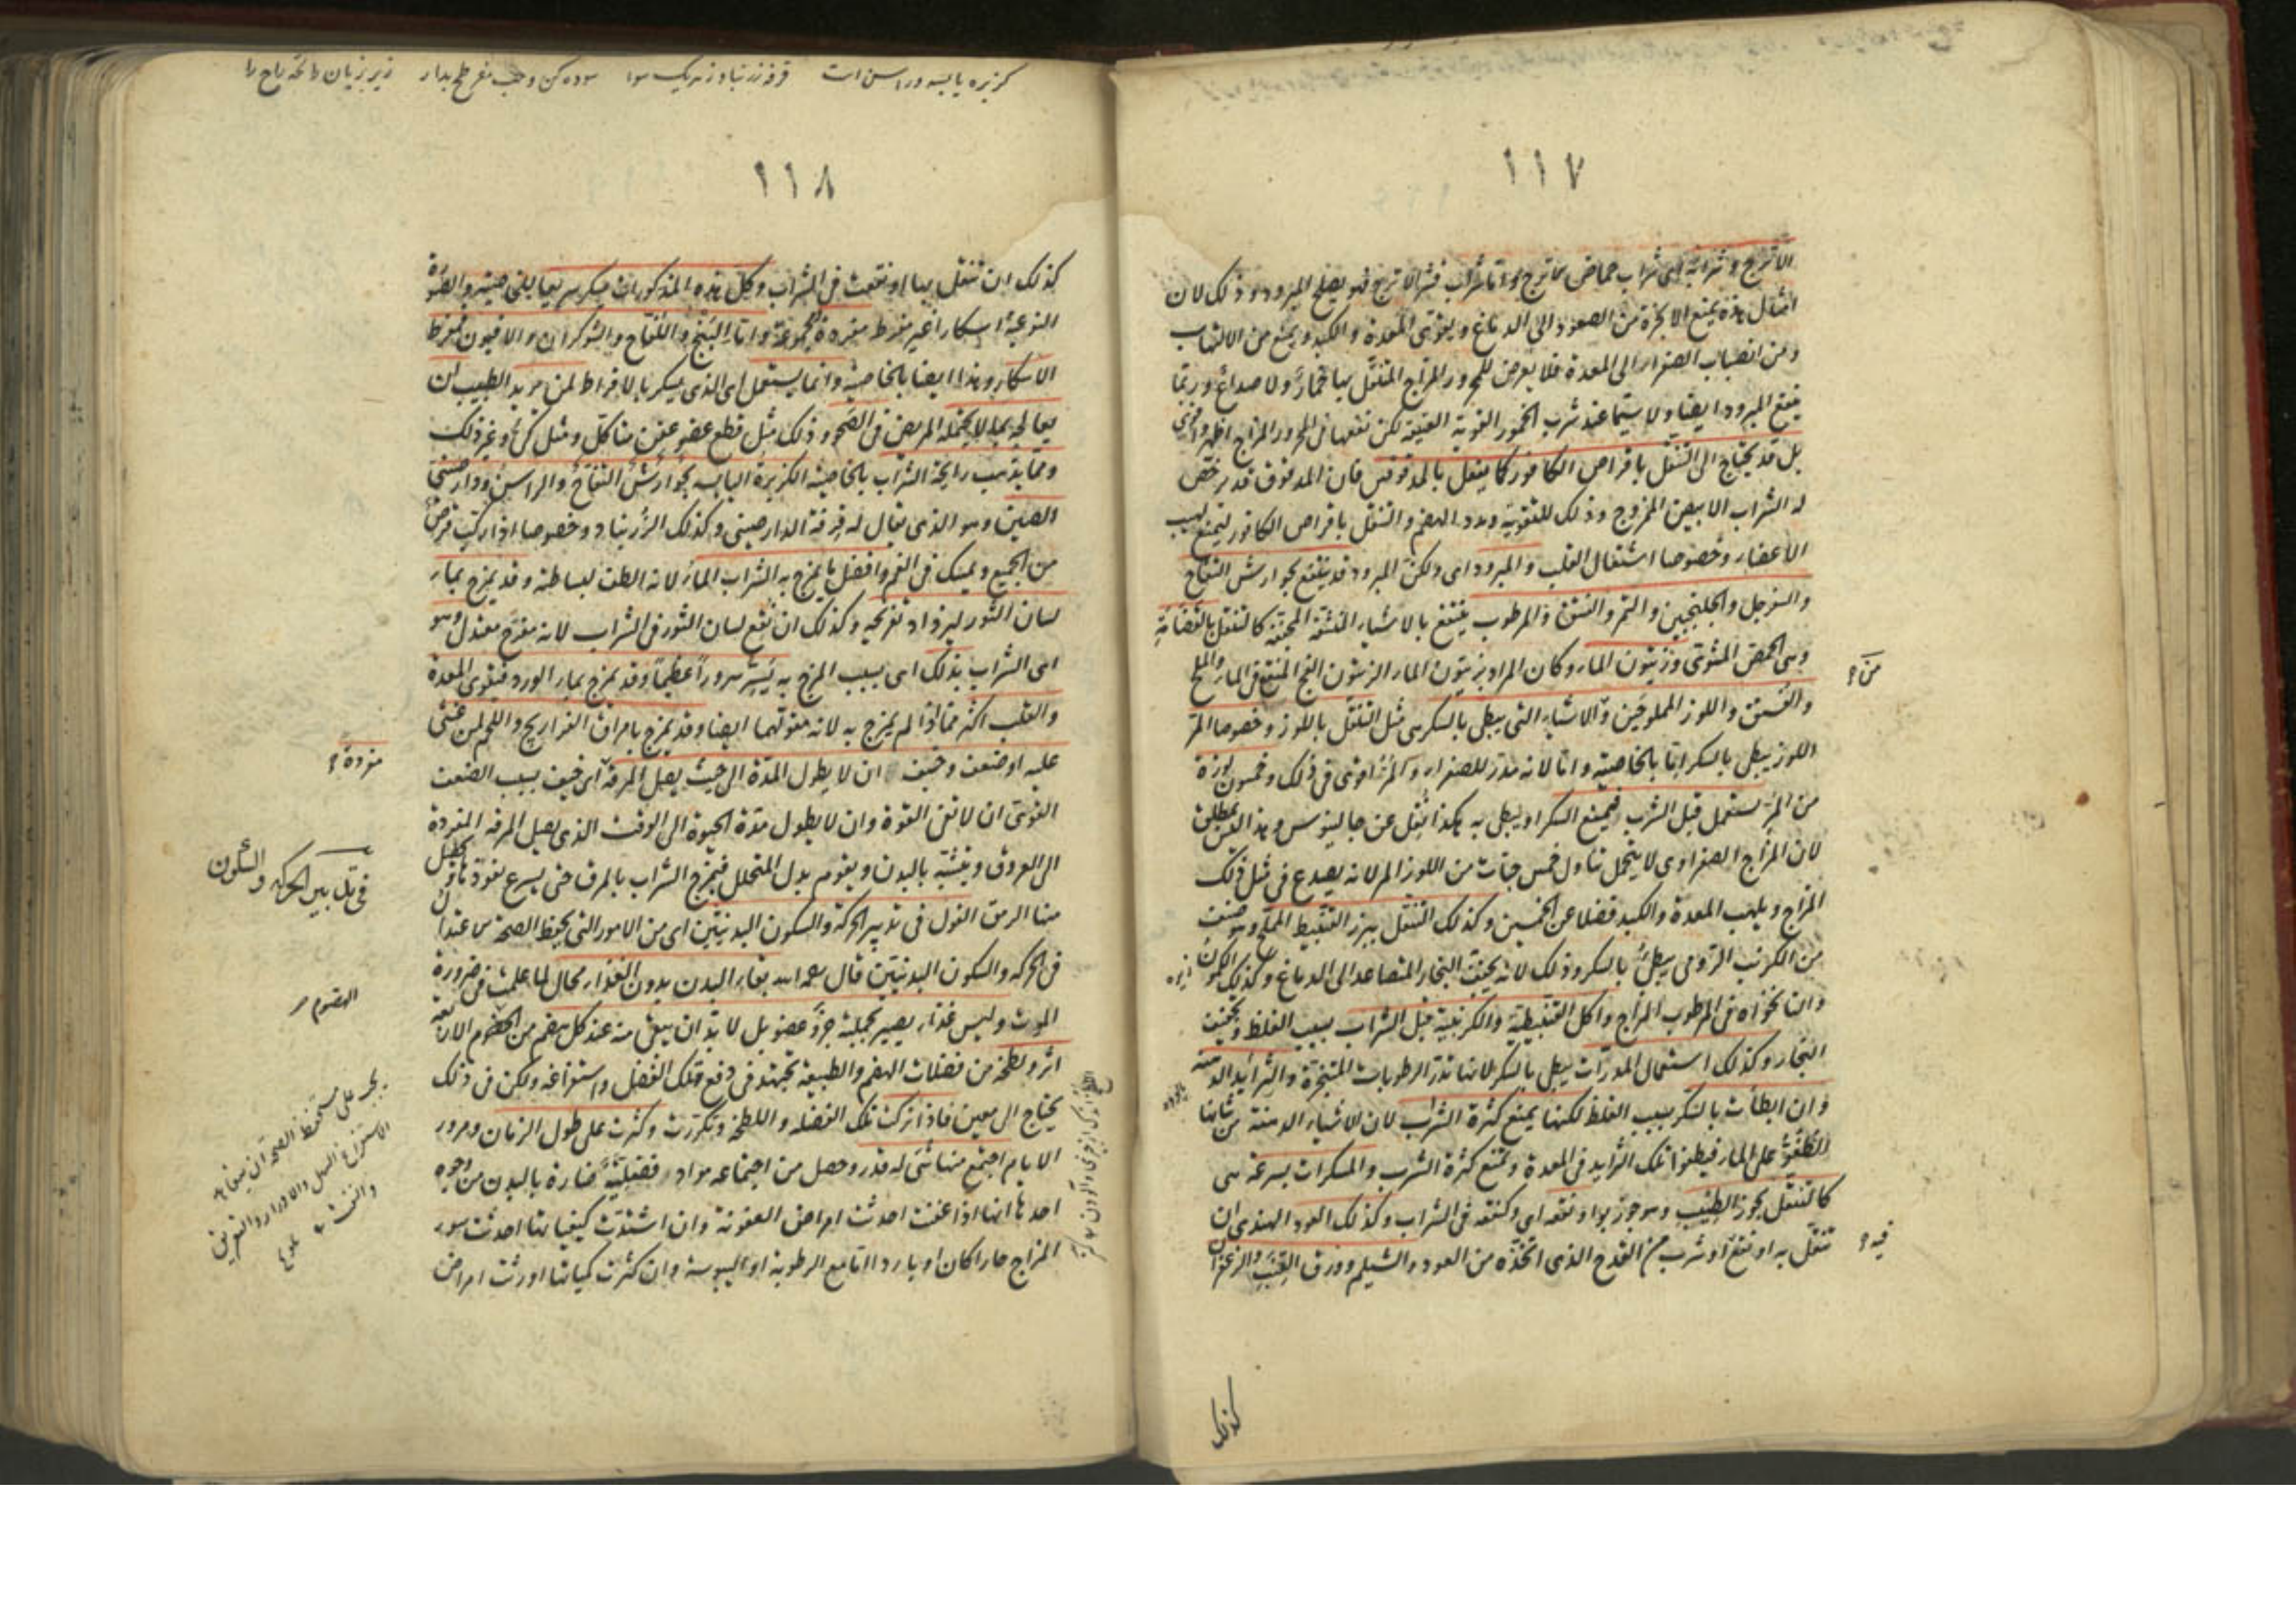 ١١٧
الاترج وشرابه ای شراب حماض الاترج واما شراب قشر الاترج فهو يصلح المبرود وذلك لان
امثال هذه يمنع الابخرة من الصعود الى الدماغ ويقوى المعدة والكبد ويمنع من الالتهاب
ومن انصباب الصفراء الى المعدة فلا يعرض للمحرور المزاج المتنقل بها خمار ولا صداع وربما
ينتفع المبرود ايضا ولا سيما عند شرب الخمور القوية العتيقة لكن نفعها فى المحرور المزاج اظهر
بل قد يحتاج الى التنقل باقراص الكافور كما يفعل بالمدقوقين فان المدقوق قد يرخص
له الشراب الابيض الممزوج وذلك للتقوية وبدد الهضم والتنقل باقراص الكافور ليمنع لهيب
الاعضاء وخصوصا اشتعال القلب والمبرود اى ولكن المبرود قد ينتفع بجوارش التفاح
والسفرجل والجلنجبين والتمر والفستق والمرطوب ينتفع بالاشياء المنشفة المجففة كالتنقل بالقضامة
وهى الحمص المشوى وزيتون الماء وكان المراد بزيتون الماء الزيتون الفج المنقع فى الماء والملح
والفستق واللوز المملوحين والاشياء التى يبطى بالسكر هى مثل التنقل باللوز وخصوصا المر
اللوز يبطى بالسكر اما بالخاصية واما لانه مدر للصفراء والمر اقوى فى ذلك وخمسون لوزة
من المر يستعمل قبل الشرب فيمنع السكر او يبطى به هكذا نقل عن جالينوس وهذا ليس بمطلق
لان المزاج الصفراوى لا يتحمل تناول خمس حبات من اللوز المر لانه يصدع فى مثل ذلك
المزاج ويلهب المعدة والكبد فضلا عن الخمسين وكذلك التنقل ببزر القنبيط المملح وهو صنف
من الكرنب الرومى يبطئ بالسكر وذلك لانه يجفف البخار المتصاعد الى الدماغ وكذلك الكمون
وان نخواه فى المرطوب المزاج واكل القنبيطية والكرنبية قبل الشراب بسبب الغلظ وتجفيف
البخار وكذلك استعمال المدرات يبطى بالسكر لانها تدر الرطوبات المتبخرة والثرائد الدسمة
وان ابطأت بالسكر بسبب الغلظ لكنها يمنع كثرة الشراب لان الاشياء الدسمة من شانها
الطفو على الماء فيطفوا تلك الثرايد فى المعدة وتمنع كثرة الشرب والمسكرات بسرعة هى
كالتنقل بجوز الطيب وهو جوز بوا او نقعه اى وكنقعه فى الشراب وكذلك العود الهندى ان
تنقل به او نقع او شرب من القدح الذى اتخذه من العود والشيلم وورق القنب والزعفران
كذلك
من؟
فيه؟
١١٨
كذلك ان تنقل بها او نقعت فى الشراب وكل هذه المذكورات مسكر سريعا بالخاصيته والصورة
النوعية اسكارا غير مفرط مفردة ومجموعة واما البنج واللفاح والشوكران والافيون فمفرط
الاسكار وهذا ايضا بالخاصية وانما يستعمل اى الذى يسكر بالافراط لمن يريد الطبيب ان
يعالجه بما لا يحتمله المريض فى الصحو وذلك مثل قطع عضو عفن متاكل ومثل كى وغير ذلك
ومما يذهب رايحة الشراب بالخاصية الكزبرة اليابسه وجوارش التفاح والراسن ودارصينى
الصين وهو الذى يقال له قرفة الدارصينى وكذلك الزرنباد وخصوصا اذا ركب قرص
من الجميع ويمسك فى الفم وافضل ما يمزج به الشراب الماء لانه الطف لبساطته وقد يمزج بماء
لسان الثور ليزداد تفريحه وكذلك ان نقع لسان الثور فى الشراب لانه مفرح معتدل وهو
اى الشراب بذلك اى بسبب المزج به يسر سرورا عظيما وقد يمزج بماء الورد فيقوى المعدة
والقلب اكثر مما اذا لم يمزج به لانه مقو لهما ايضا وقد يمزج بامراق الفراريج واللحم لمن غشى
عليه او ضعف وخيف ان لا يطول المدة الى حيث يصل المرقة اى خيف بسبب الضعف
القوى ان لا تفى القوة وان لا يطول مدة الحيوة الى الوقت الذى يصل المرقه المفردة
الى العروق وتتشبه بالبدن ويقوم بدل المتحلل فيمزج الشراب بالمرق حتى يسرع نفوذ ما يحصل
منها الرمق القول فى تدبير الحركة والسكون البدنيتين اى من الامور التى يحفظ الصحة
فى الحركه والسكون البدنيتين قال رحمه الله بقاء البدن بدون الغذاء محال لما علمت فى ضرورة
الموت وليس غذاء يصير بجملته جزو عضو بل لا بد ان يبقى منه عند كل هضم من الهضوم الاربعة
اثر ولطخة من فضلات الهضم والطبيعة تجتهد فى دفع تلك الفضل واستفراغه ولكن فى ذلك
يحتاج الى معين فاذا تركت تلك الفضله واللطخة وتكررت وكثرت على طول الزمان ومرور
الايام اجتمع منها شئ له قدر وحصل من اجتماعه مواد فضلية ضارة بالبدن من وجوه
احدها انها اذا عفنت احدثت امراض العفونة وان اشتدت كيفياتها احدثت سوء
المزاج حارا كان او باردا اما مع الرطوبة او اليبوسة وان كثرت كمياتها اورثت امراض
مفردة؟
فى تدبير الحركه والسكون
الهضوم